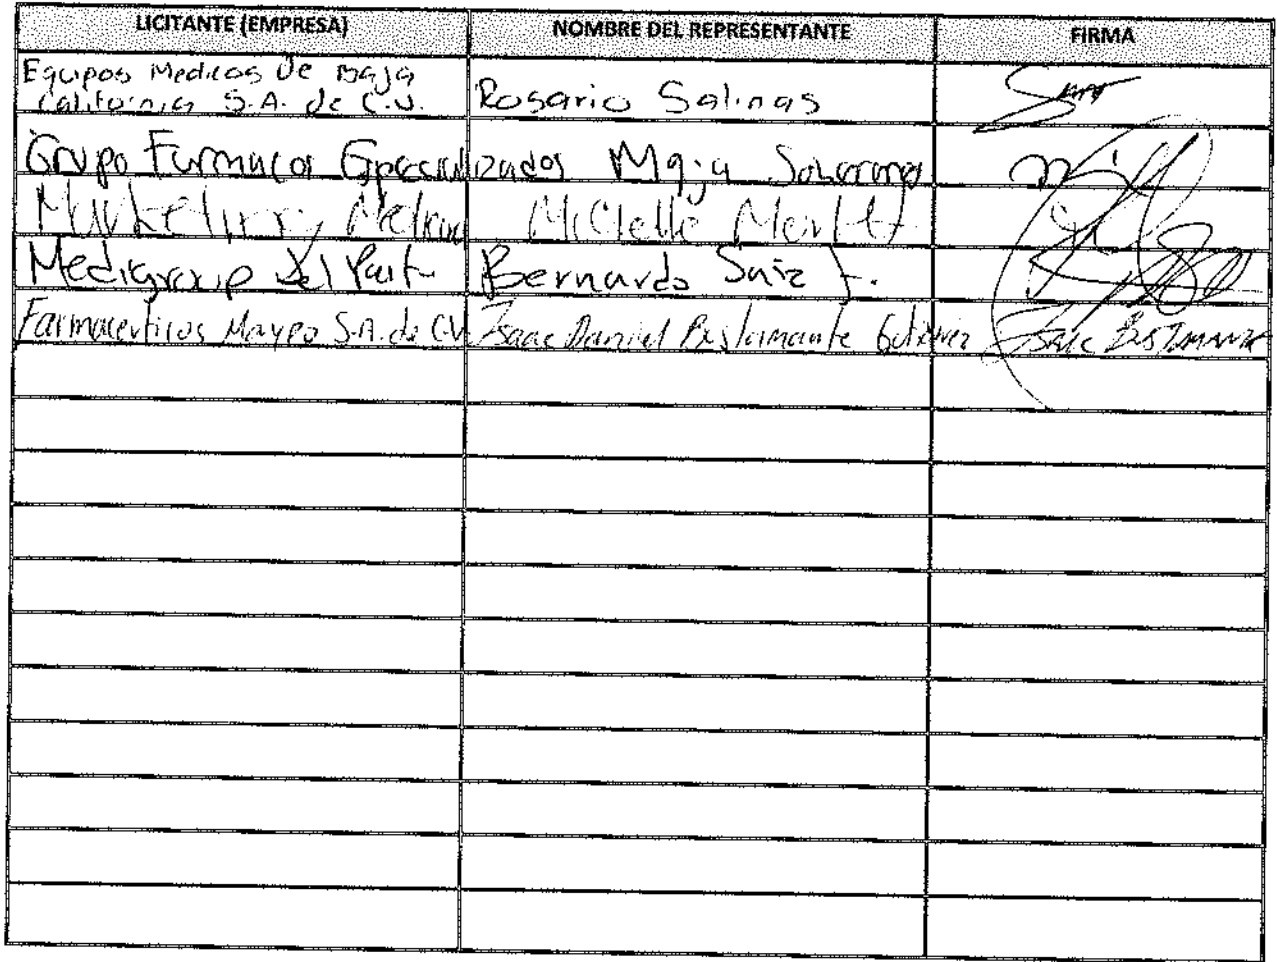 LICITANTE (EMPRESA) NOMBRE DEL REPRESENTANTE FIRMA
Equipos Medicos de Baja
California S.A. de C.V. Rosario Salinas
Grupo Farmacos Especializados
Marketing
Medigroup del Bernardo
Farmaceuticos Maypo S.A. de C.V. Isaac Daniel Bustamante Gutierrez Isaac Bustamante